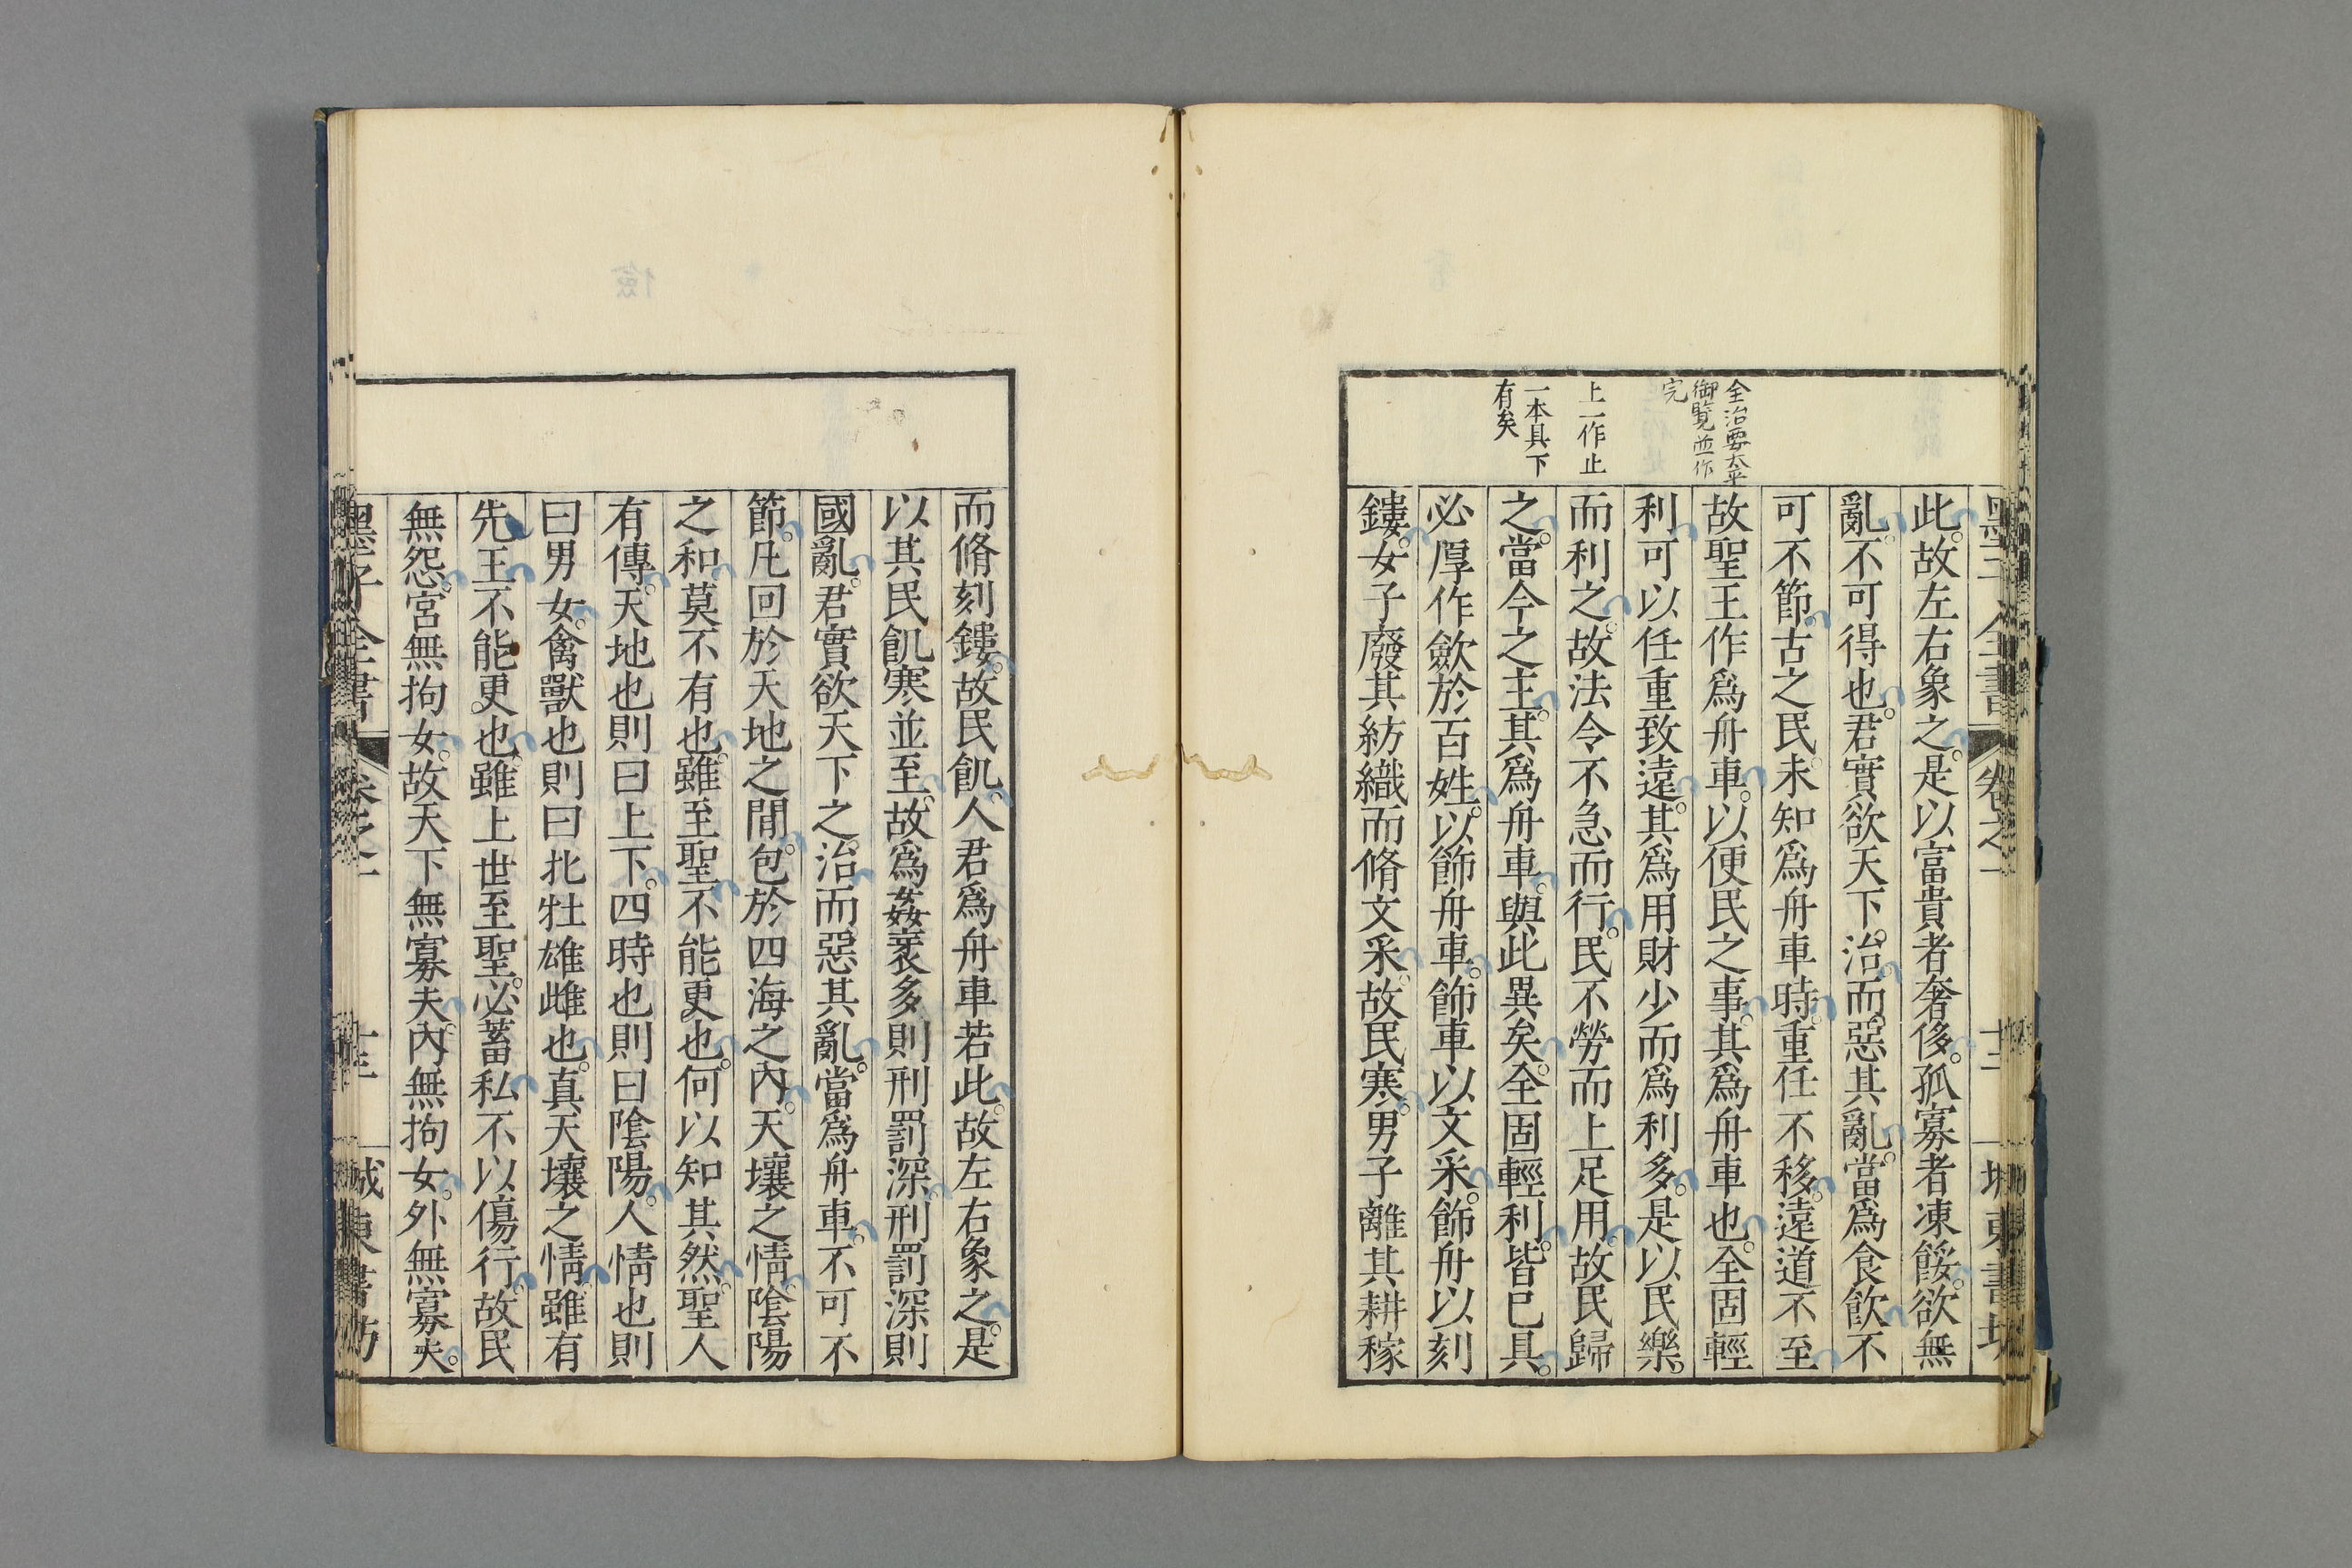 墨子全書 卷之一 十二 城東書坊
此。故左右象之。是以富貴者奢侈。孤寡者凍餒。欲無
亂。不可得也。君實欲天下。治而。惡其亂。當爲食飲不
可不節。古之民。未知爲舟車時。重任不移。遠道不至
故聖王作爲舟車。以便民之事。其爲舟車也。全固輕
利。可以任重致遠。其爲用財少而爲利多。是以民樂。
而利之。故法令不急而行。民不勞而上足用。故民歸
之。當今之主。其爲舟車。與此異矣。全固輕利。皆已具。
必厚作歛於百姓。以飾舟車。飾車以文采。飾舟以刻
鏤。女子廢其紡織而脩文采。故民寒。男子離其耕稼
全治要太平
御覽並作
完
上一作止
一本具下
有矣
而脩刻鏤。故民飢。人君爲舟車若此。故左右象之。是
以其民飢寒並至。故爲姦衺多則刑罰深。刑罰深則
國亂。君實欲天下之。治而惡其亂。當爲舟車。不可不
節。凡回於天地之間。包於四海之內。天壤之情。陰陽
之和。莫不有也。雖至聖。不能更也。何以知其然。聖人
有傳。天地也則曰上下。四時也則曰陰陽。人情也則
曰男女。禽獸也則曰牝牡雄雌也。真天壤之情。雖有
先王。不能更。也。雖上世至聖。必蓄私不以傷行。故民
無怨。宮無拘女。故天下無寡夫。內無拘女。外無寡夫。
墨子全書 卷之一 十三 城東書坊